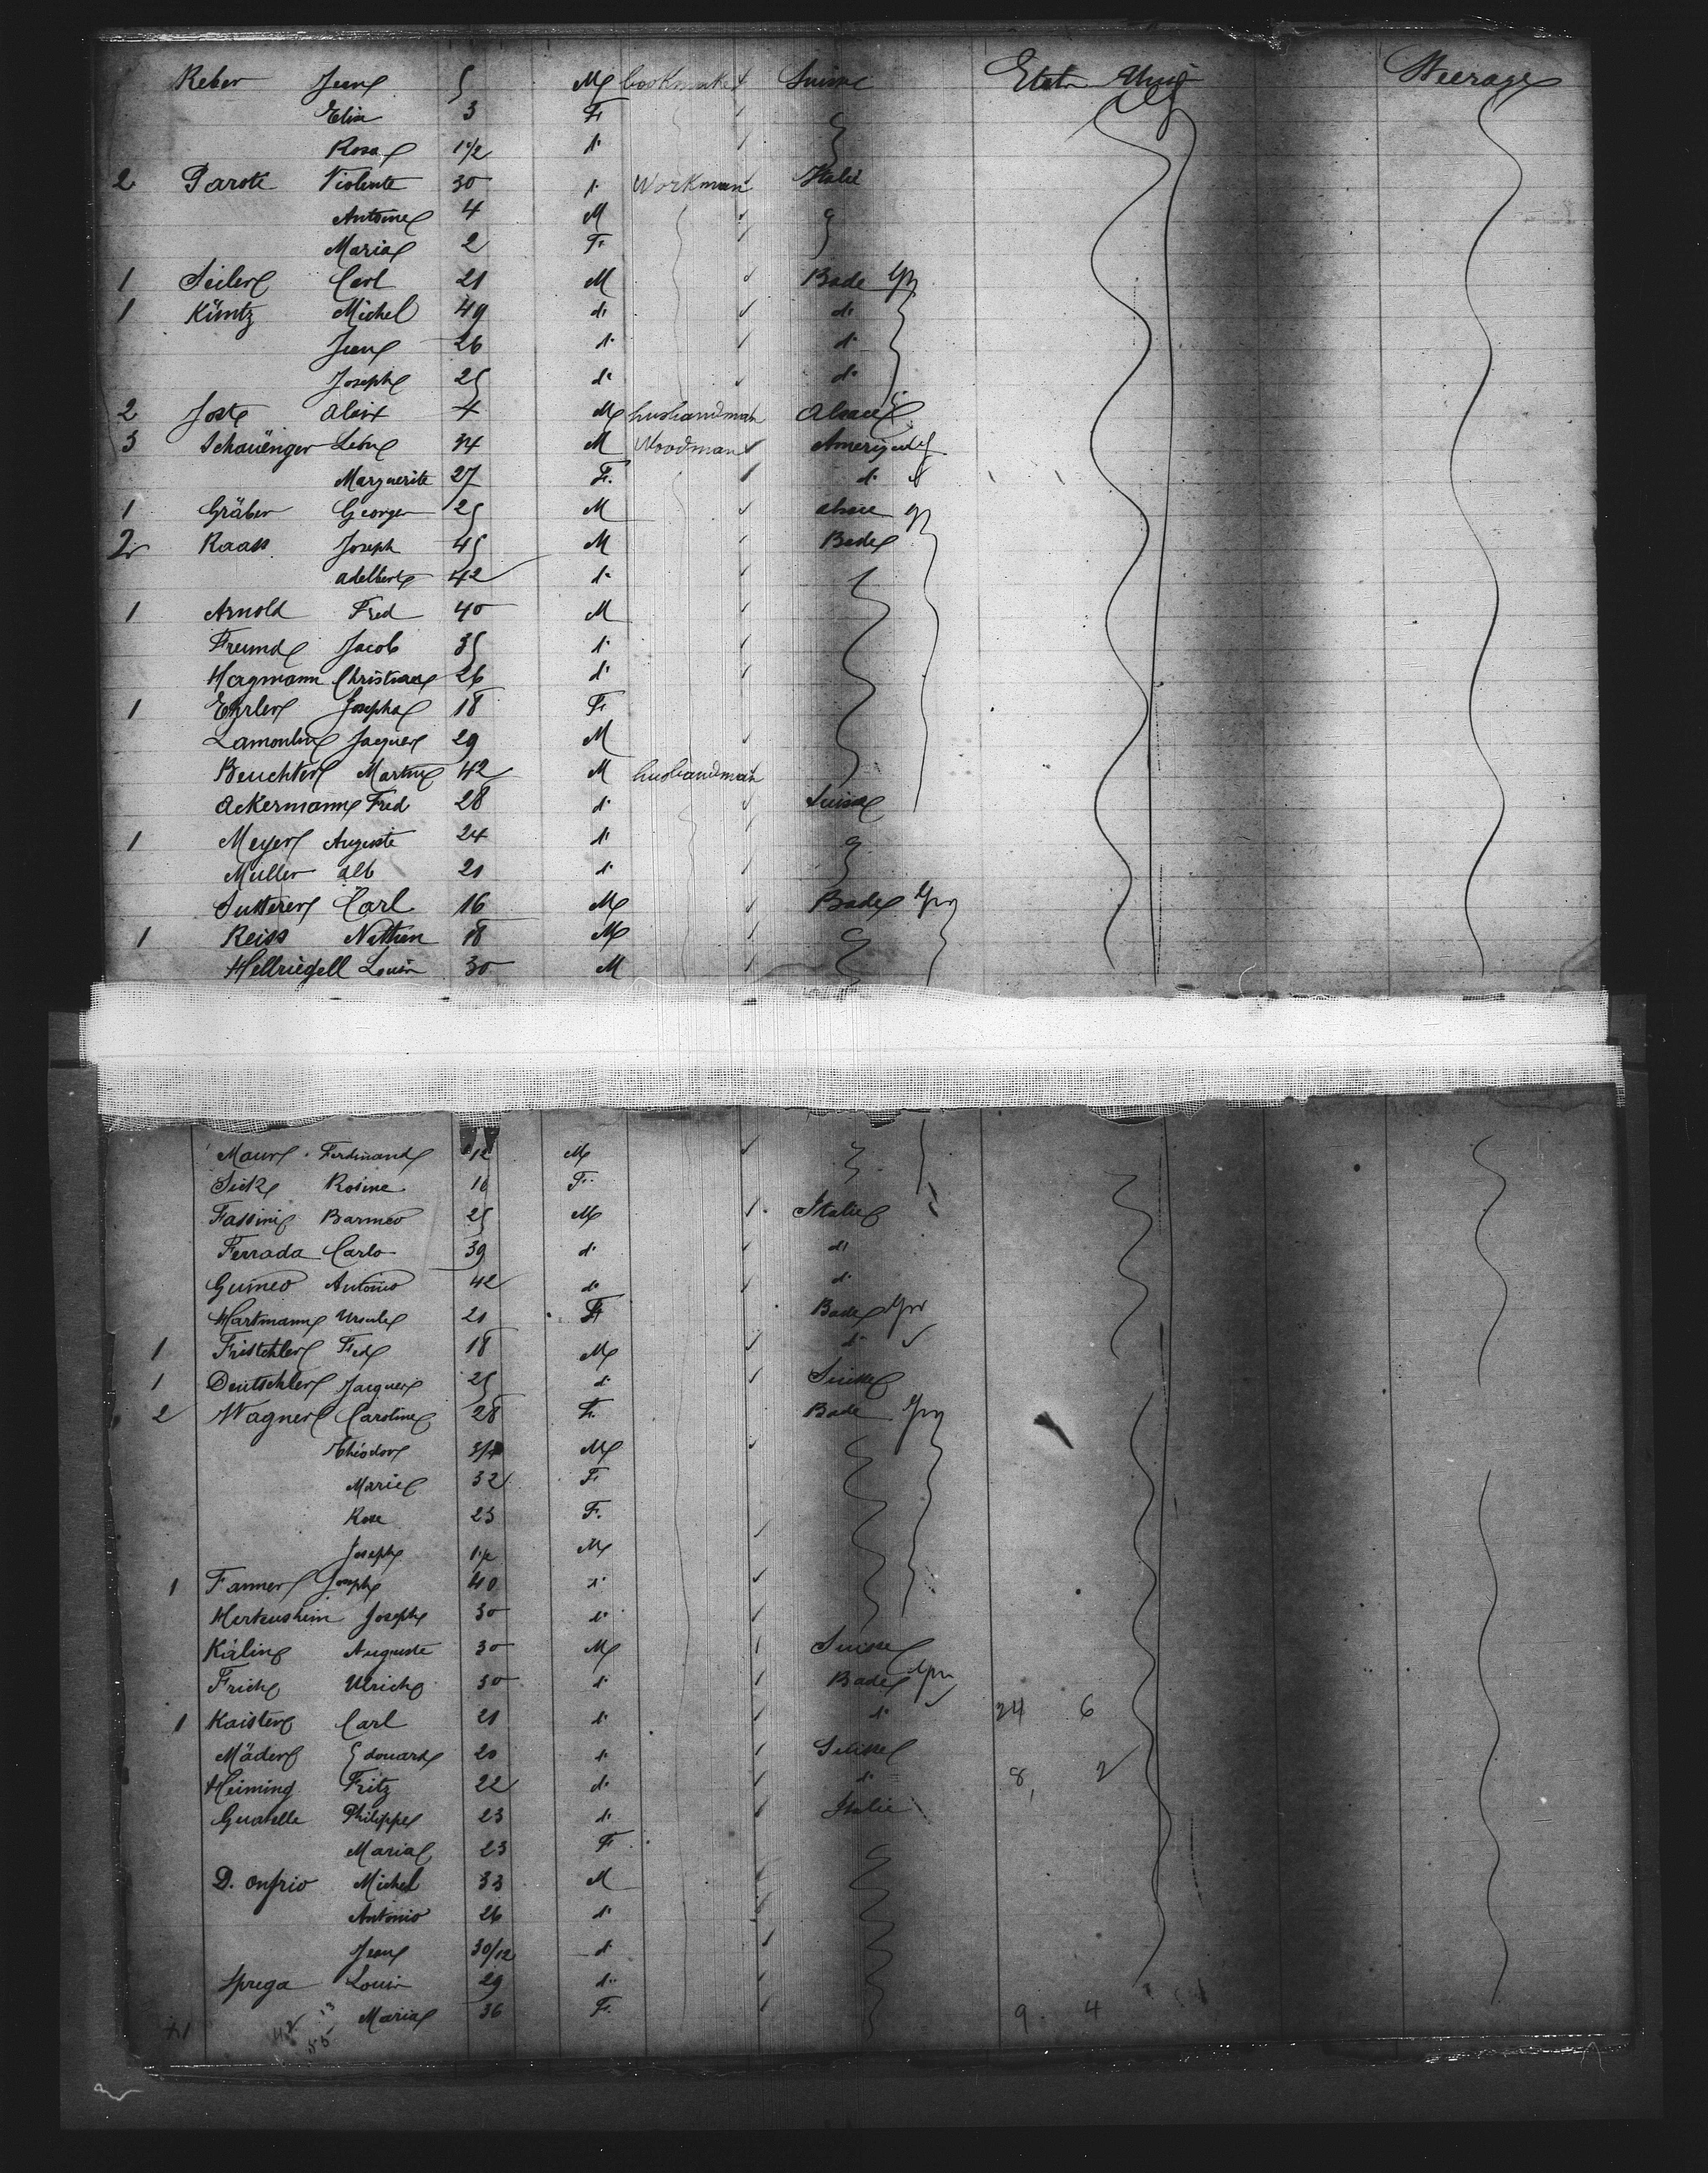 Reber Jean 5 M bookmaker Suisse Etats Unis Steerage
Elise 3 F
Rosa 1 1/2 d°
2 Parote Violente 30 d° Workman Italie
Antoine 4 M
Maria 2 F
1 Seiler Carl 21 M Bade Gr
1 Küntz Michel 49 d° d°
Jean 26 d° d°
Joseph 25 d° d°
2 Joste Aloix 4 M husbandman Alsace
3 Schauënger Léon 34 M Woodman Amerique
Marguerite 27 F. d°
1 Gräber Georges 25 M alsace Gr
2 Raass Joseph 45 M Bade
adelbert 42 d°
1 Arnold Fred 40 M
Freund Jacob 35 d°
Hagmann Christian 26 d°
1 Ehrler Josepha 18 F
Lamoulin Jaques 29 M
Beuchter Martin 42 M husbandman
Ackermann Fred 28 d° Suisse
1 Meyer Auguste 24 d°
Müller Alb 21 d°
Sutterer Carl 16 M Bade Gr
1 Reiss Nathan 18 M
Hellriegell Louis 30 M
Maur Ferdinand 12 M
Sick Rosine 16 F.
Fassini Barmeo 25 M Italie
Ferrada Carlo 39 d° d°
Guineo Antonio 42 d° d°
Hartmann Ursule 21 F Bade Gr
1 Fristchler Fred 18 M d°
1 Deutschler Jacques 25 d° Suisse
2 Wagner Caroline 28 F. Bade Gr
Théodor 3/4 M
Marie 32 F
Rose 23 F.
Joseph 1 1/2 M
1 Fanner Joseph 40 d°
Herkusheim Joseph 30 d°
Kälin Auguste 30 M Suisse
Frick Ulrich 30 d° Bade Gr
1 Kaister Carl 21 d° d° 24 6
Mäder Edouard 20 d° Suisse
Heiming Fritz 22 d° d° 8, 2
Guatelle Philippe 23 d° Italie
Maria 23 F
D. Onfrio Michel 33 M
Antonio 26 d°
Jean 30/12 d°
Sprega Louis 29 d°
Maria 36 F. 9 4